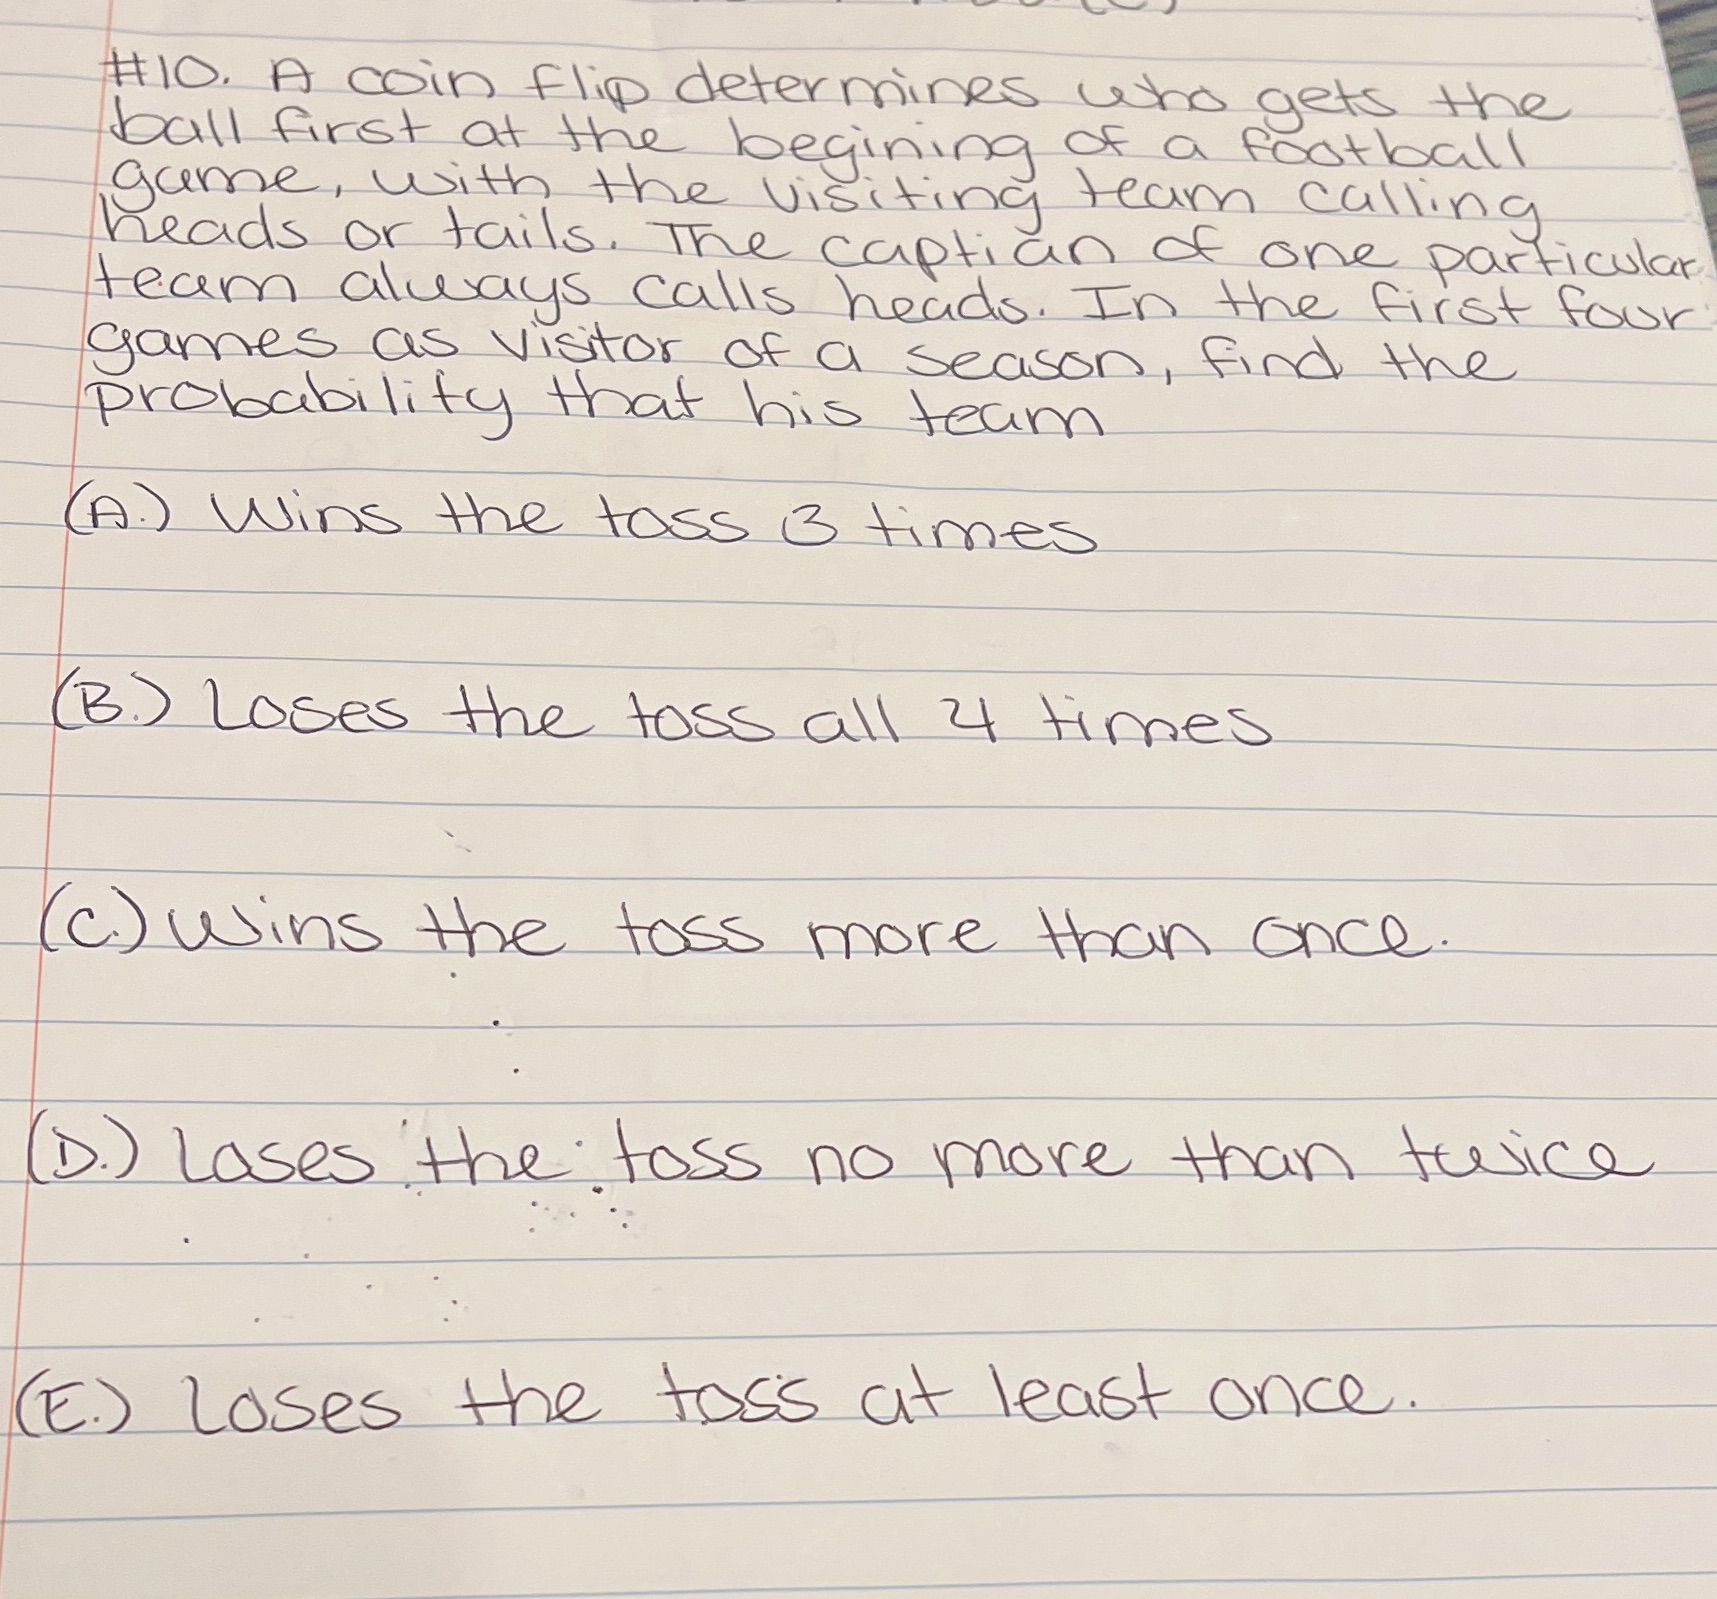 #10. A coin flip determines who gets the
ball first at the begining of a football
game, with the visiting team calling
heads or tails. The captian of one particular
team always calls heads. In the first four
games as visitor of a season, find the
probability that his team
(A.) Wins the toss 3 times
(B.) Loses the toss all 4 times
(C.) Wins the toss more than once.
(D.) Loses the toss no more than twice
(E.) Loses the toss at least once.